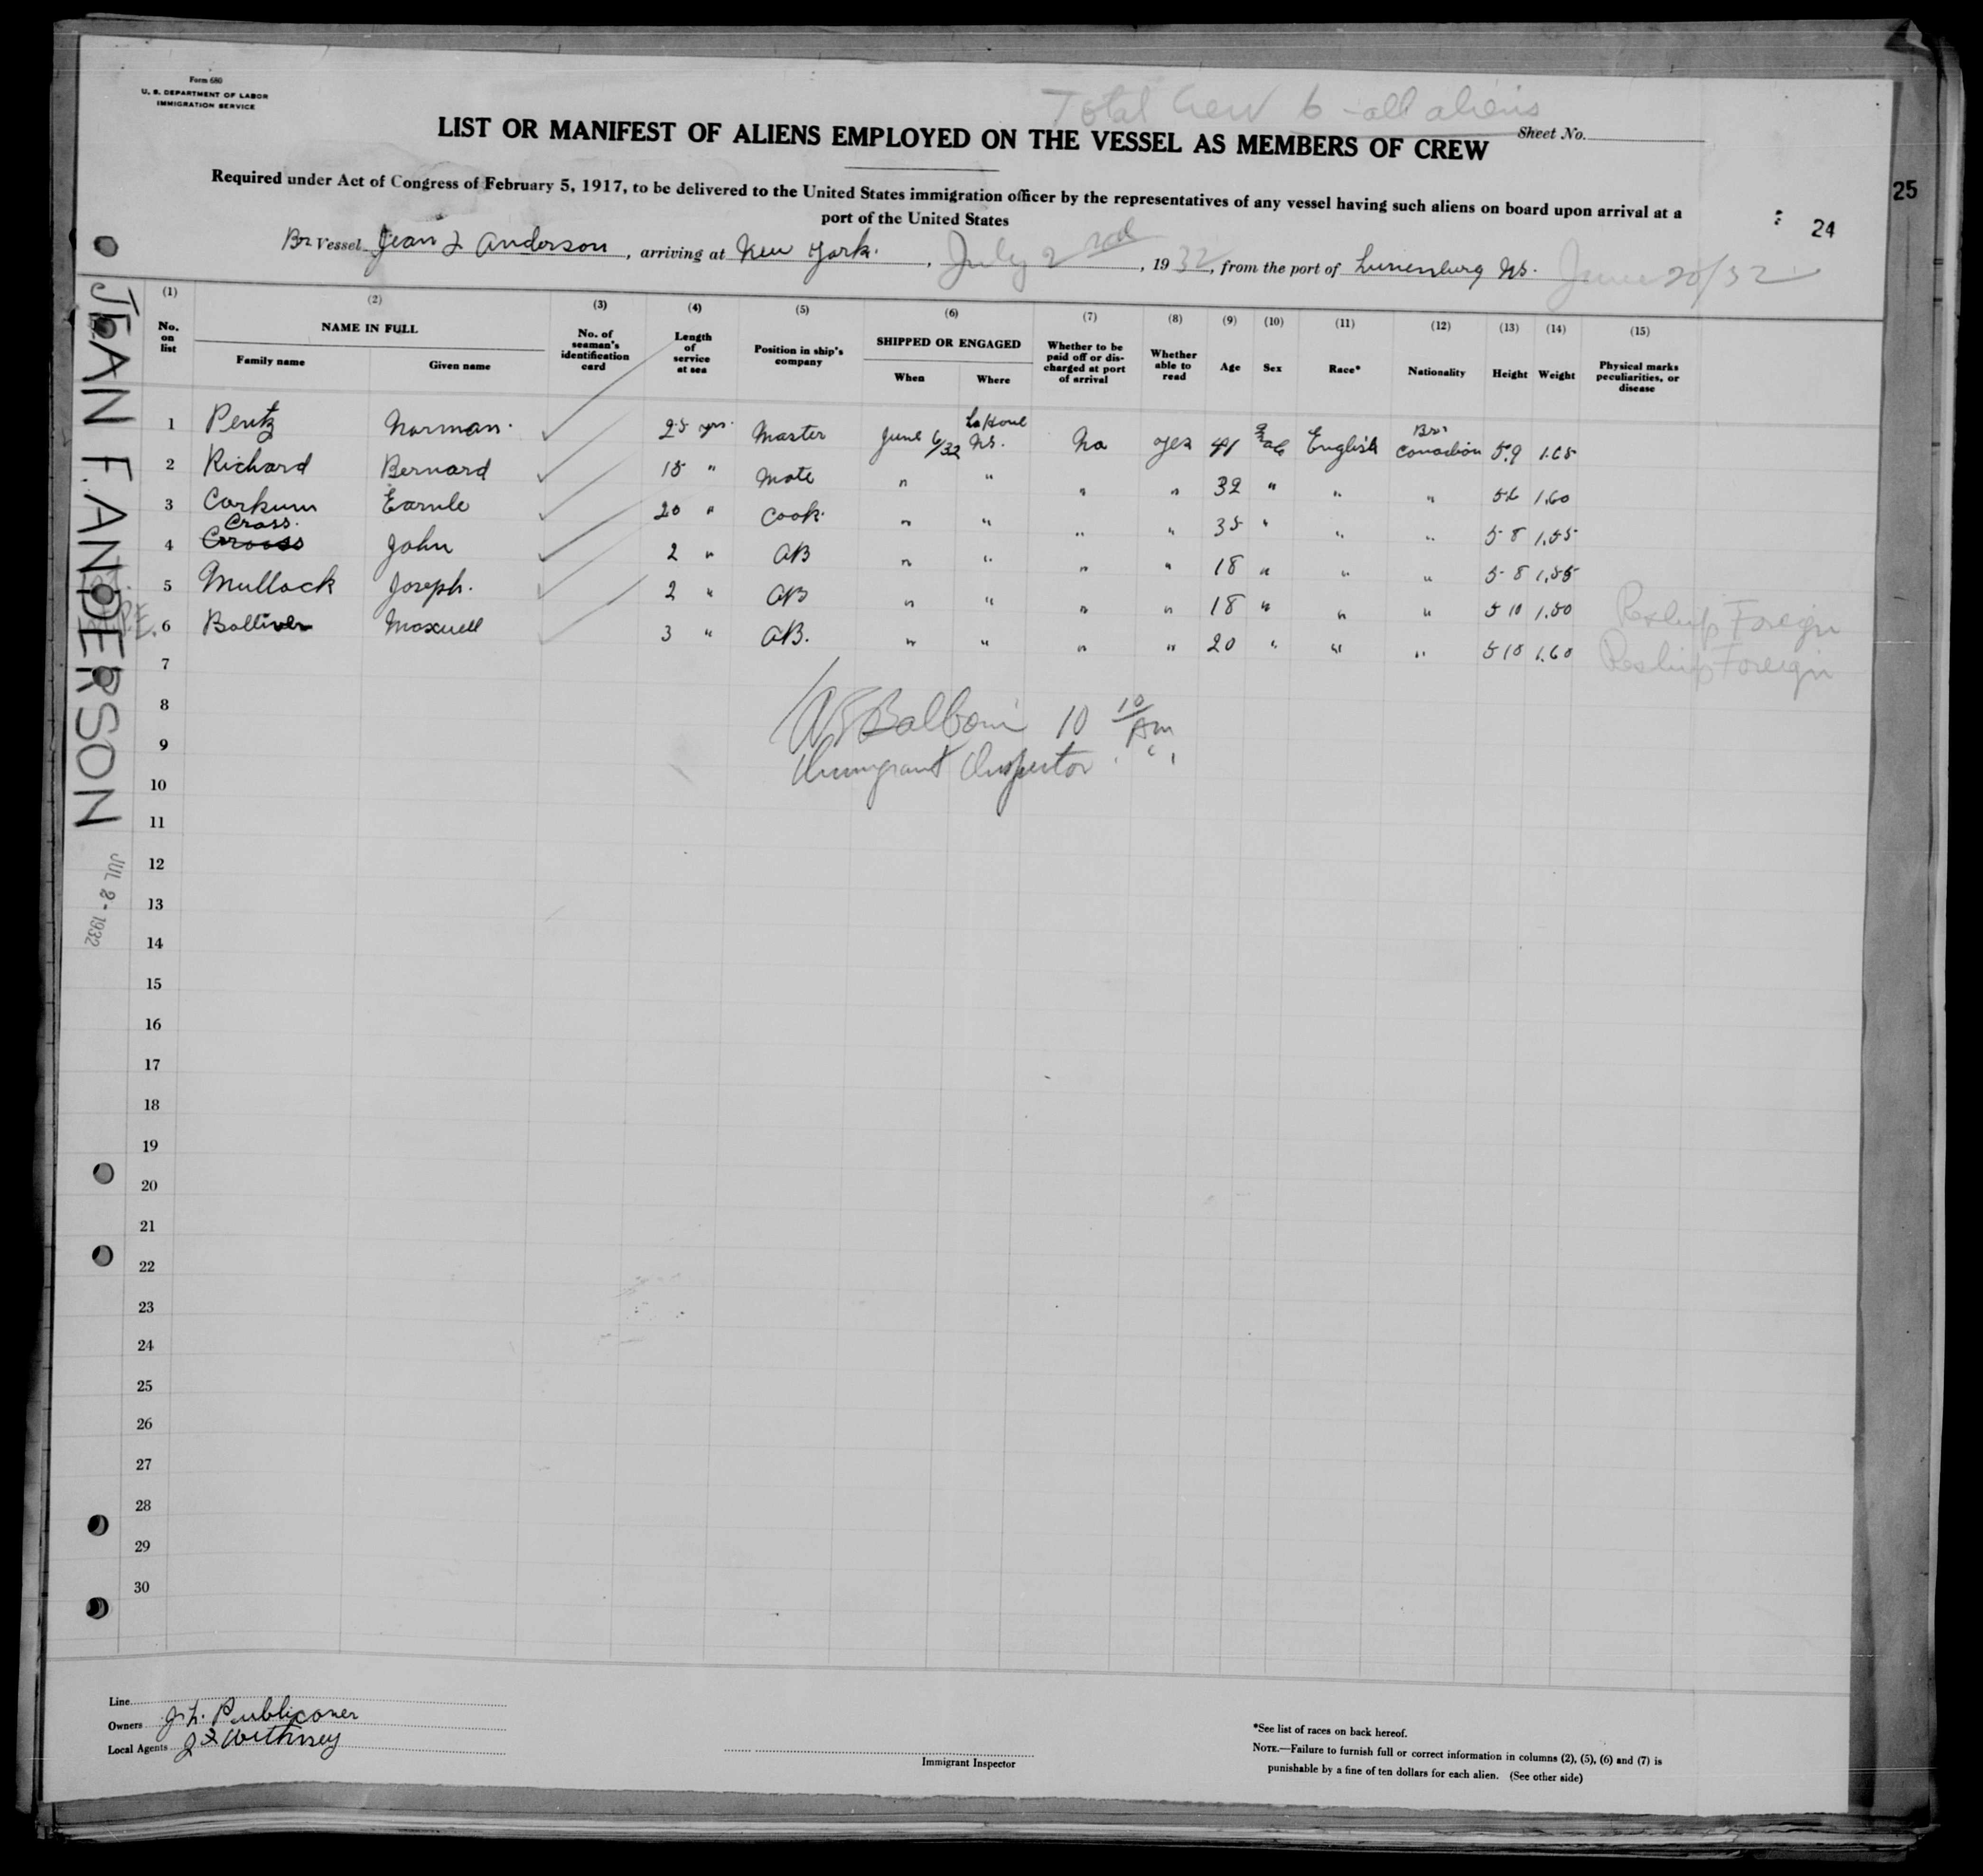 Form 680
U. S. DEPARTMENT OF LABOR
IMMIGRATION SERVICE
Total Crew 6 - all aliens
LIST OR MANIFEST OF ALIENS EMPLOYED ON THE VESSEL AS MEMBERS OF CREW
Sheet No.
Required under Act of Congress of February 5, 1917, to be delivered to the United States immigration officer by the representatives of any vessel having such aliens on board upon arrival at a
port of the United States
25
24
Br Vessel Jean F Anderson, arriving at New York., July 2nd, 1932, from the port of Lunenburg NS. June 20/32
JEAN F. ANDERSON
JUL 2 - 1932
(1) (2) (3) (4) (5) (6) (7) (8) (9) (10) (11) (12) (13) (14) (15)
No. on list
NAME IN FULL
Family name Given name
No. of seaman's identification card
Length of service at sea
Position in ship's company
SHIPPED OR ENGAGED
When Where
Whether to be paid off or discharged at port of arrival
Whether able to read
Age Sex Race* Nationality Height Weight
Physical marks peculiarities, or disease
1 Pentz Norman. 25 yrs. Master June 6/32 LaHave NS. No yes 41 Male English Br. Canadian 5.9
2 Richard Bernard 15 " Mate " " " " 32 " " " 5.6 1.60
3 Corkum Earnle 20 " Cook. " " " " 35 " " " 5 8 1.55
Cross.
4 Crooss John 2 " AB " " " " 18 " " " 5 8 1.55
5 Mullock Joseph. 2 " AB " " " " 18 " " " 5 10 1.50 Reship Foreign
6 Bolliver Maxwell 3 " AB. " " " " 20 " " " 5 10 1.60 Reship Foreign
7
8
9
10
11
12
13
14
15
16
17
18
19
20
21
22
23
24
25
26
27
28
29
30
Balboni 10 10/Am
Immigrant Inspector
Line
Owners J. L. Publicover
Local Agents
Immigrant Inspector
*See list of races on back hereof.
NOTE.—Failure to furnish full or correct information in columns (2), (5), (6) and (7) is
punishable by a fine of ten dollars for each alien. (See other side)